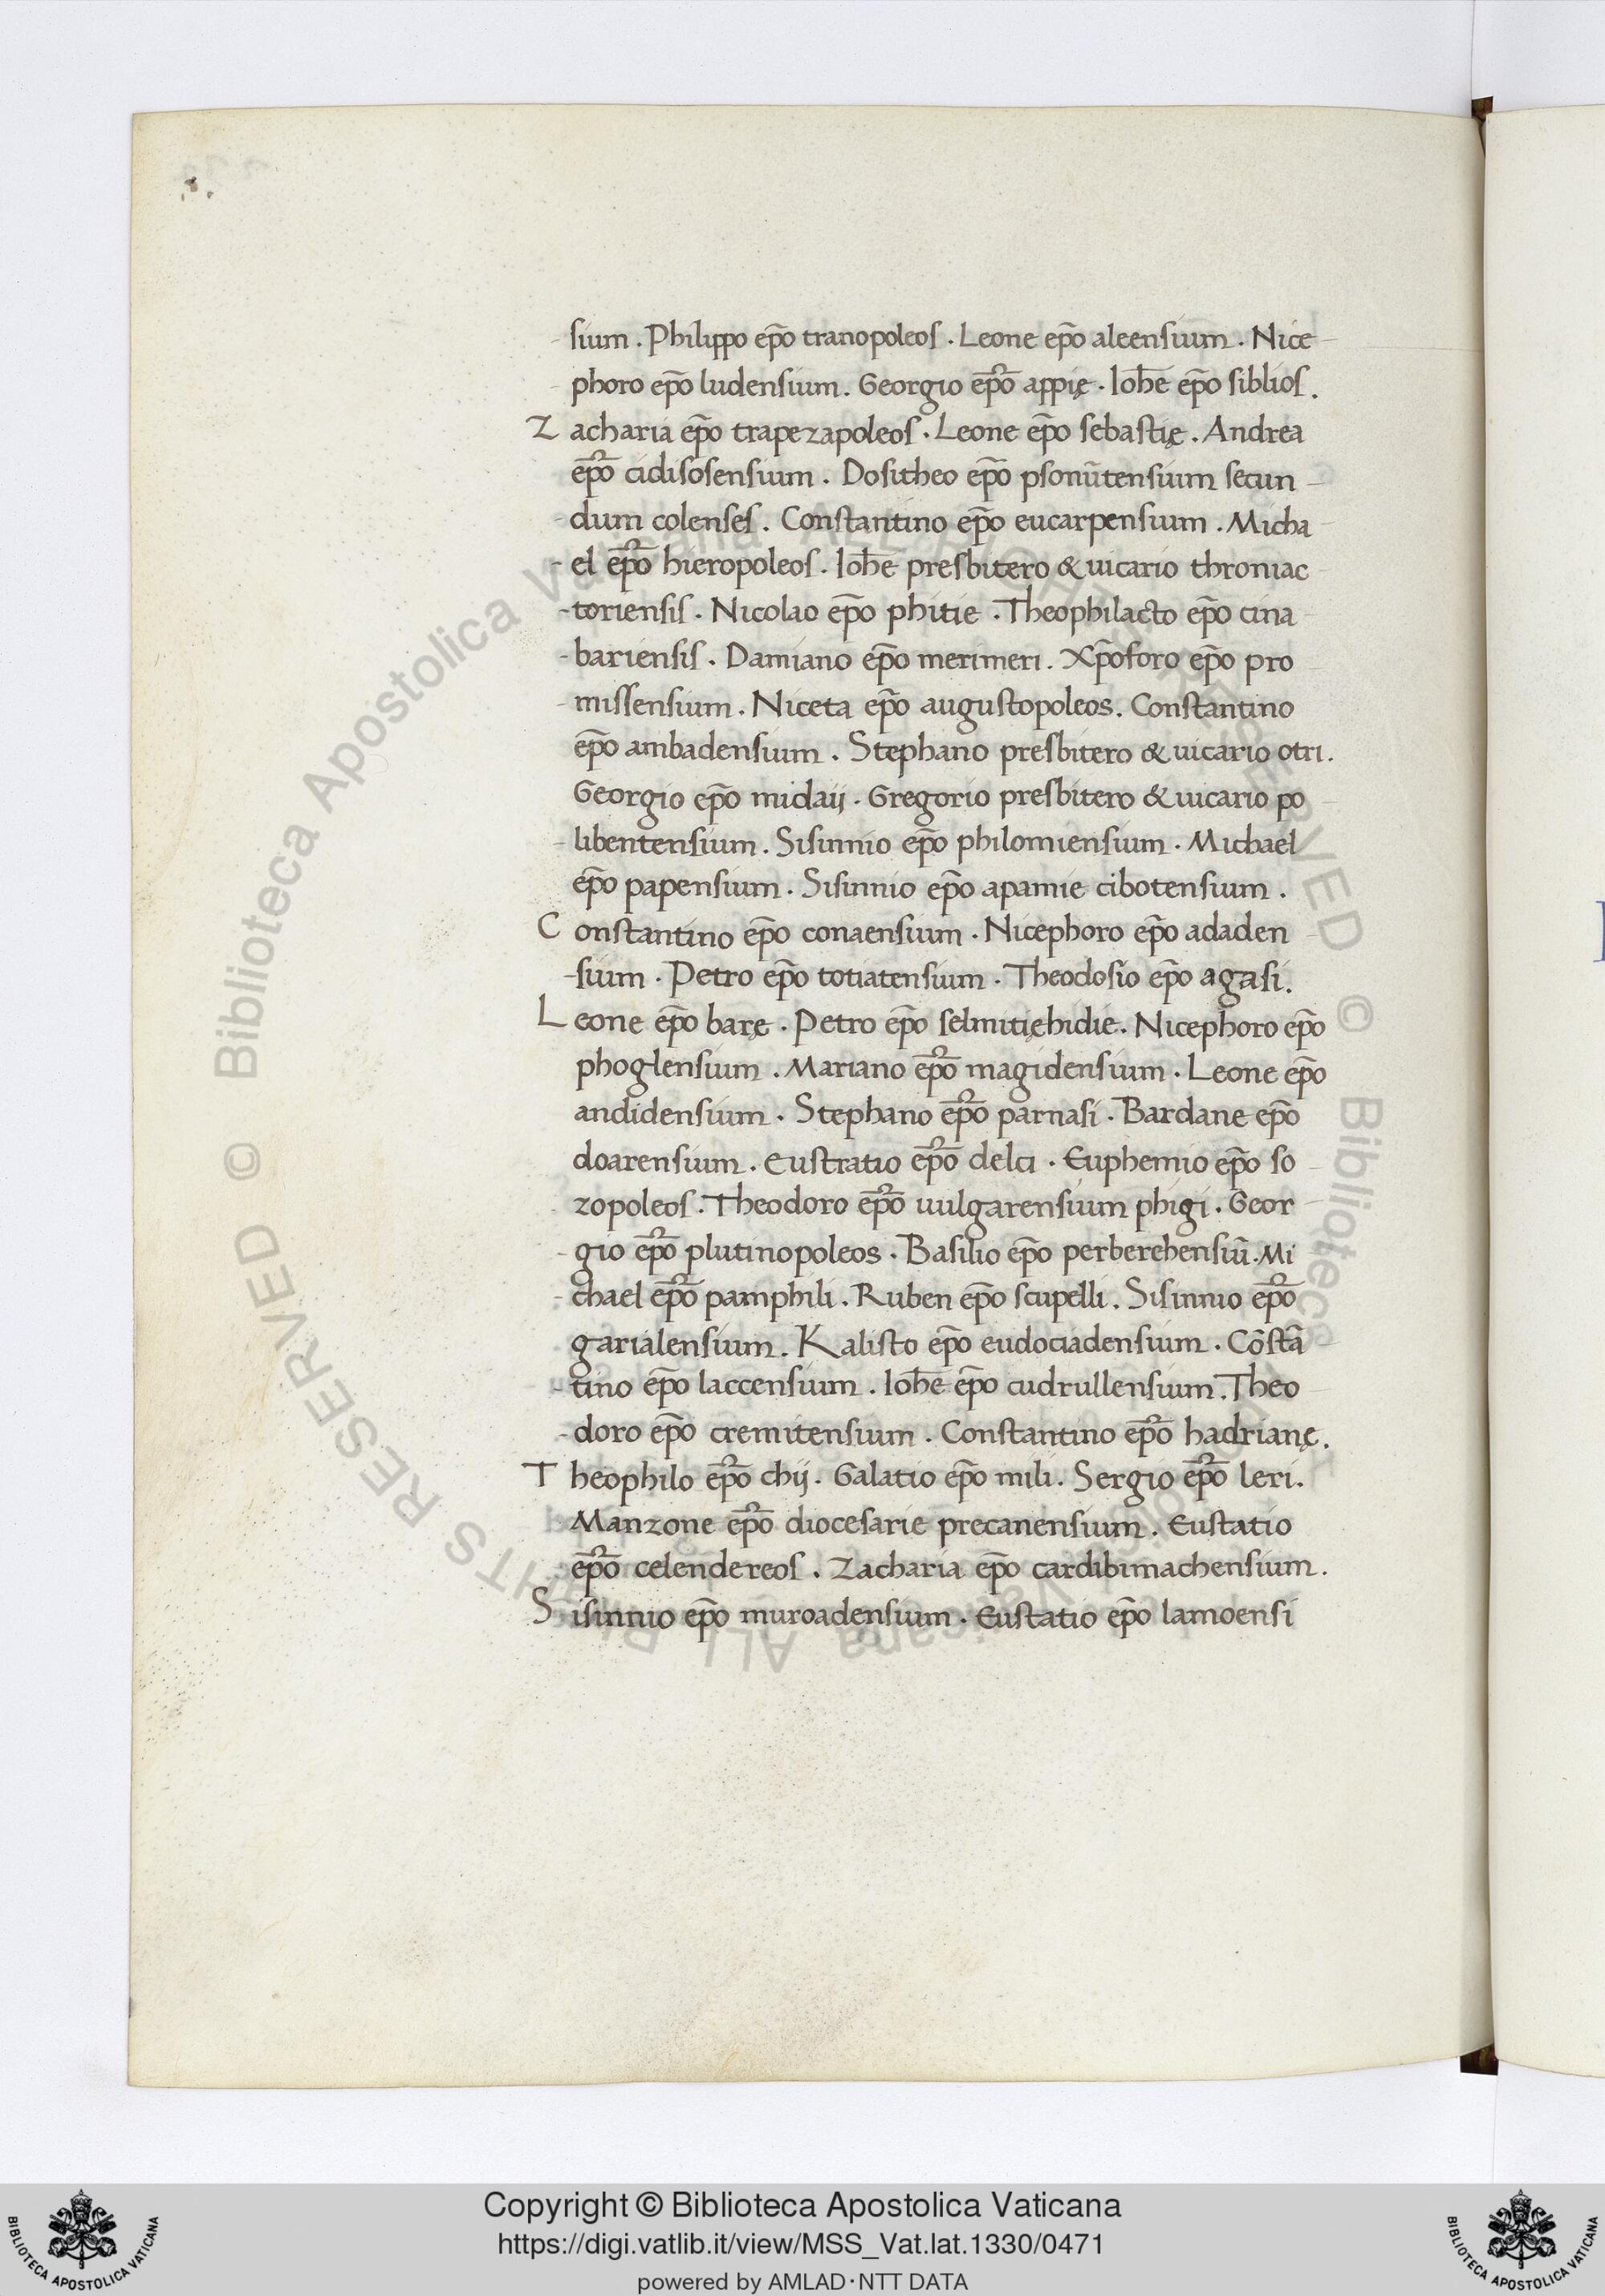 sium . Philippo ep̄o tranopoleos . Leone ep̄o aleensium . Nice
phoro ep̄o ludensium . Georgio ep̄o appię . Ioh̄e ep̄o siblios .
Zacharia ep̄o trapezapoleos . Leone ep̄o sebastię . Andrea
ep̄o cidisosensium . Dositheo ep̄o psonūtensium secun
dum colenses . Constantino ep̄o eucarpensium . Micha
el ep̄o hieropoleos . Ioh̄e presbitero & uicario throniac
toriensis . Nicolao ep̄o phitie . Theophilacto ep̄o cina
bariensis . Damiano ep̄o merimeri . Xp̄oforo ep̄o pro
missensium . Niceta ep̄o augustopoleos . Constantino
ep̄o ambadensium . Stephano presbitero & uicario otri .
Georgio ep̄o midaij . Gregorio presbitero & uicario po
libentensium . Sisinnio ep̄o philomiensium . Michael
ep̄o papensium . Sisinnio ep̄o apamie cibotensium .
Constantino ep̄o conaensium . Nicephoro ep̄o adaden
sium . Petro ep̄o totiatensium . Theodosio ep̄o agasi .
Leone ep̄o barę . Petro ep̄o selmitięhidie . Nicephoro ep̄o
phoglensium . Mariano ep̄o magidensium . Leone ep̄o
andidensium . Stephano ep̄o parnasi . Bardane ep̄o
doarensium . Eustratio ep̄o delci . Euphemio ep̄o so
zopoleos . Theodoro ep̄o uulgarensium phigi . Geor
gio ep̄o plutinopoleos . Basilio ep̄o perberehensiū . Mi
chael ep̄o pamphili . Ruben ep̄o scupelli . Sisinnio ep̄o
garialensium . Kalisto ep̄o eudociadensium . Cōstā
tino ep̄o laccensium . Ioh̄e ep̄o cudrullensium . Theo
doro ep̄o cremitensium . Constantino ep̄o hadrianę .
Theophilo ep̄o chij . Galatio ep̄o mili . Sergio ep̄o leri .
Manzone ep̄o diocesarie precanensium . Eustatio
ep̄o celendereos . Zacharia ep̄o cardibimachensium .
Sisinnio ep̄o muroadensium . Eustatio ep̄o lamoensi
© Biblioteca Apostolica Vaticana ALL RIGHTS RESERVED © Biblioteca Apostolica Vaticana ALL RIGHTS RESERVED
Copyright © Biblioteca Apostolica Vaticana
https://digi.vatlib.it/view/MSS_Vat.lat.1330/0471
powered by AMLAD·NTT DATA
BIBLIOTECA APOSTOLICA VATICANA
BIBLIOTECA APOSTOLICA VATICANA